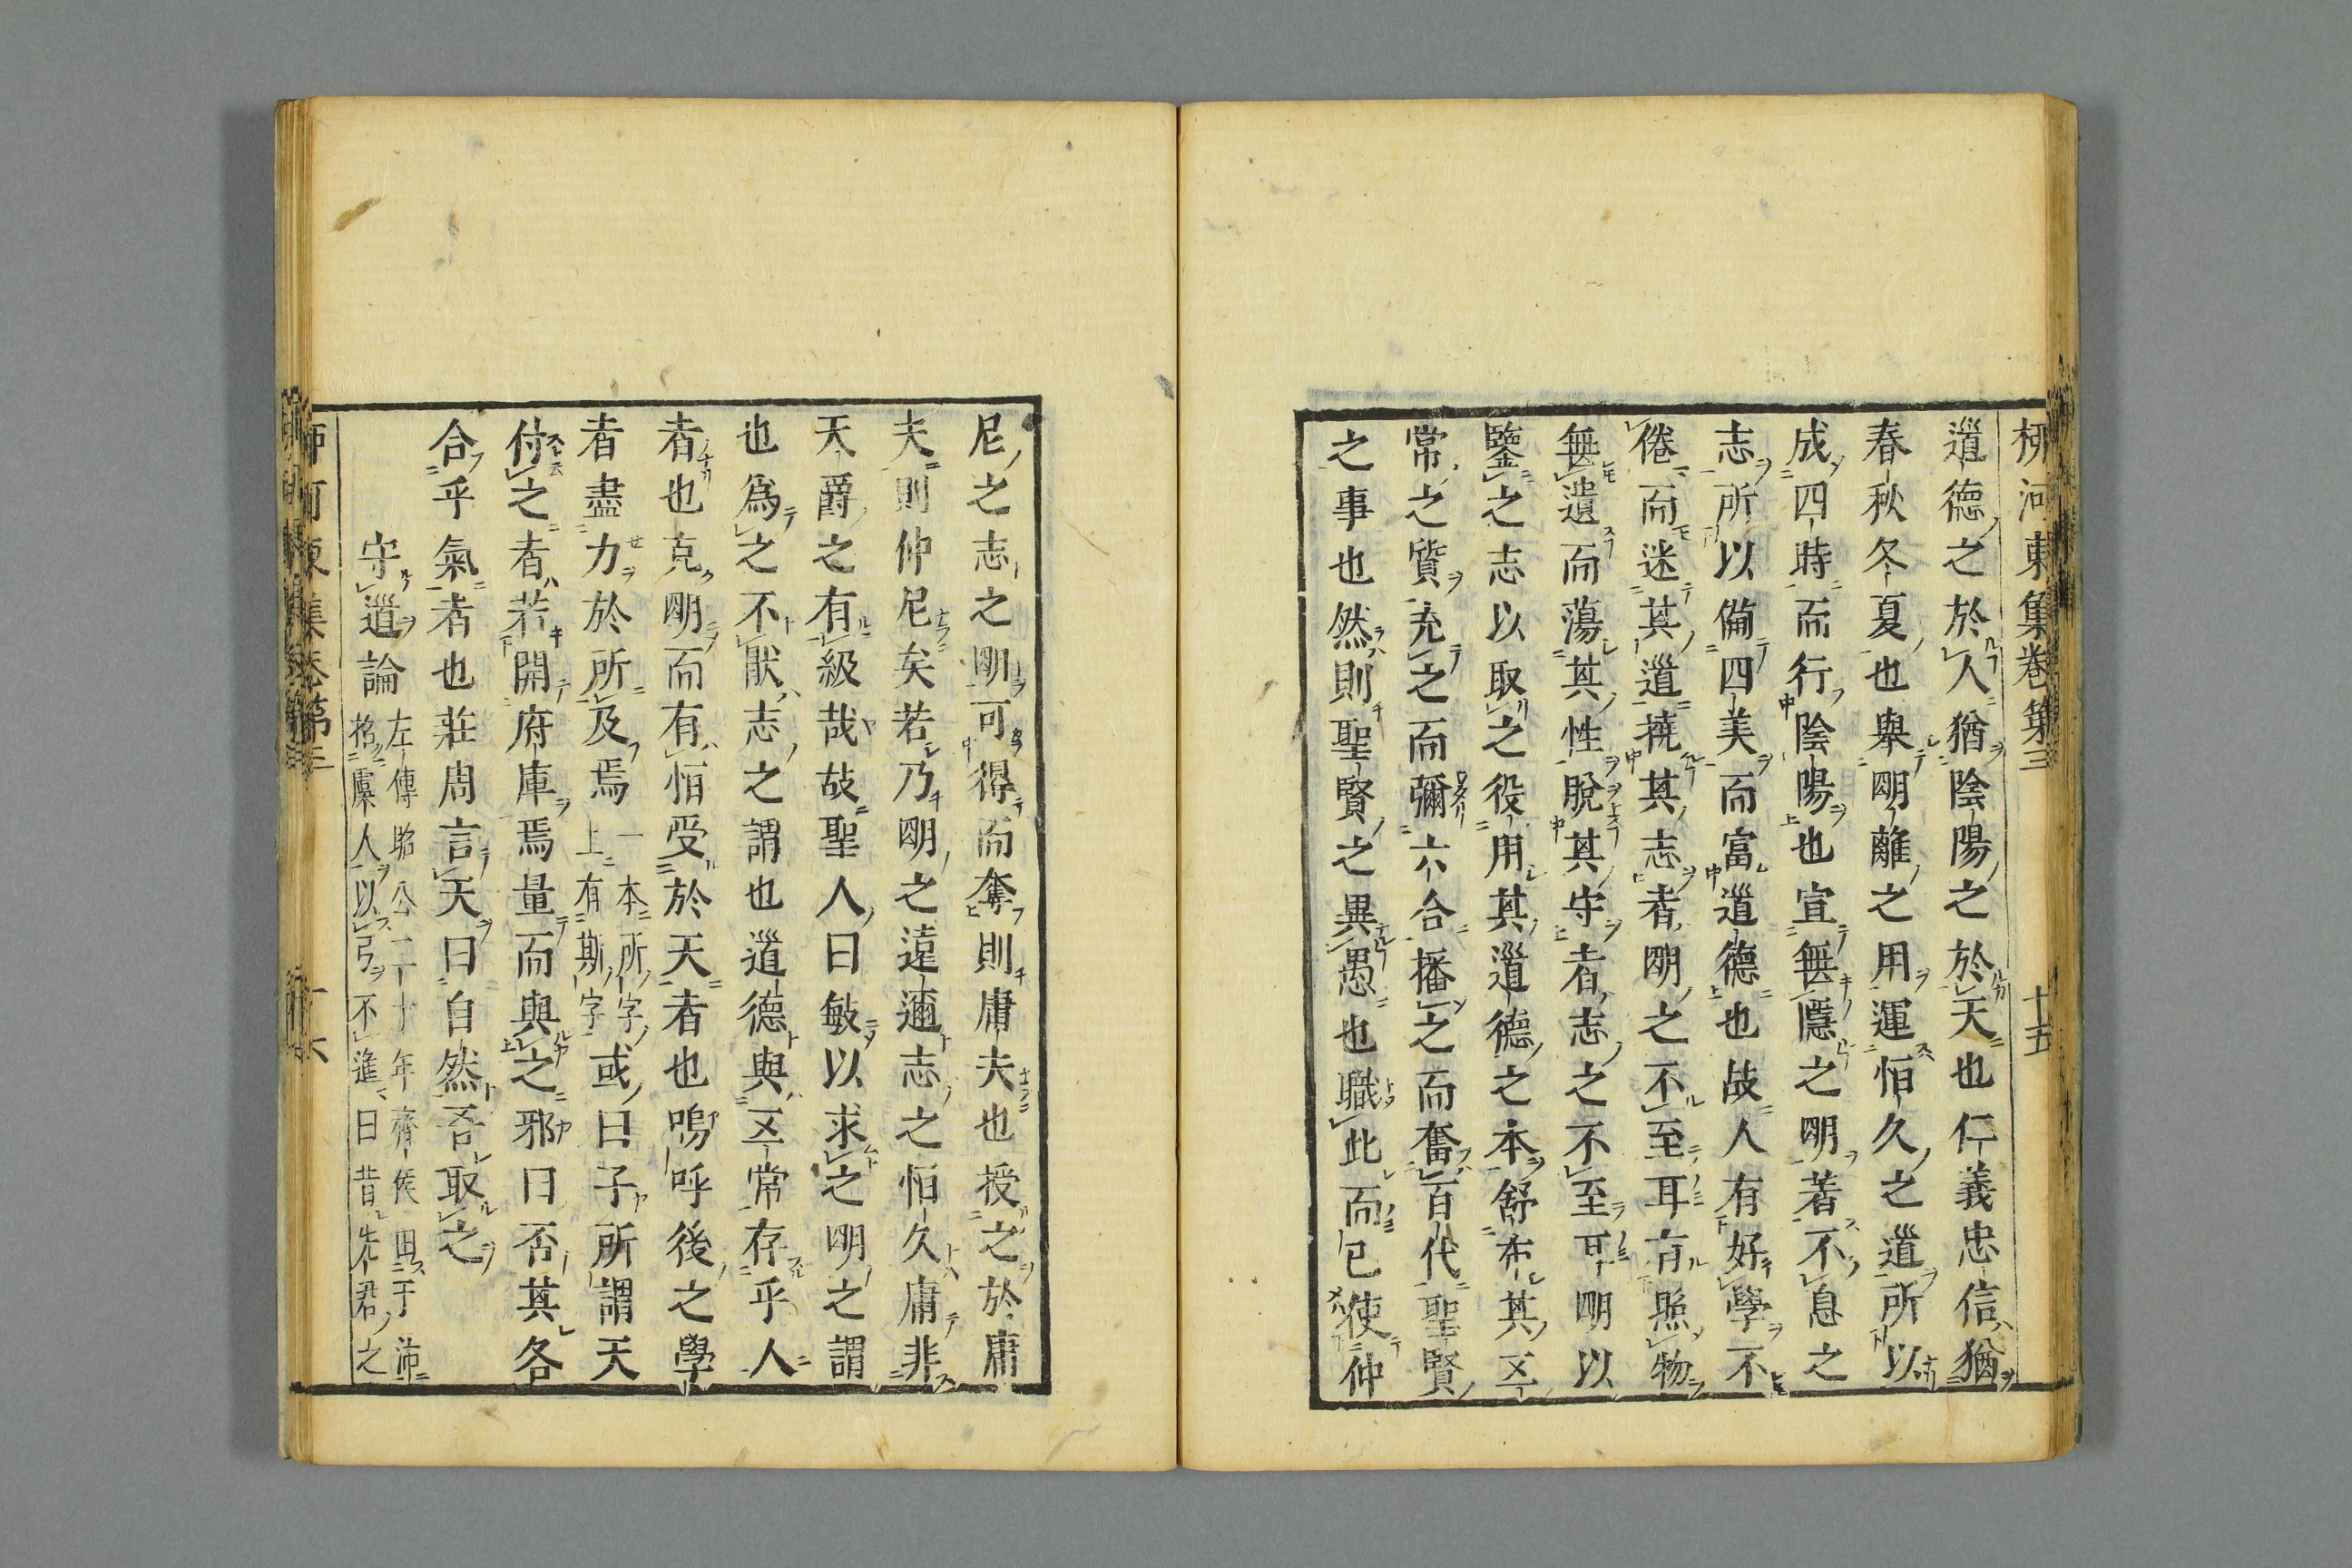 柳河東集卷第三 十五
道德之於人猶陰陽之於天也仁義忠信猶
春秋冬夏也舉明離之用運恒久之道所以
成四時而行陰陽也宣無隱之明著不息之
志所以備四美而富道德也故人有好學不
倦而迷其道撓其志者明之不至耳有照物
無遺而蕩其性脫其守者志之不至耳明以
鑒之志以取之役用其道德之本舒布其五
常之質充之而彌六合播之而奮百代聖賢
之事也然則聖賢之異愚也職此而已使仲
尼之志之明可得而奪則庸夫也授之於庸
夫則仲尼矣若乃明之遠邇志之恒久庸非
天爵之有級哉故聖人曰敏以求之明之謂
也為之不厭志之謂也道德與五常存乎人
者也克明而有恒受於天者也嗚呼後之學
者盡力於所及焉 一本所字
上有斯字 或曰子所謂天
付之者若開府庫焉量而與之邪曰否其各
合乎氣者也莊周言天曰自然吾取之
守道論 左傳昭公二十年齊侯田于沛
招虞人以弓不進曰昔先君之
柳河東集卷第三 十六